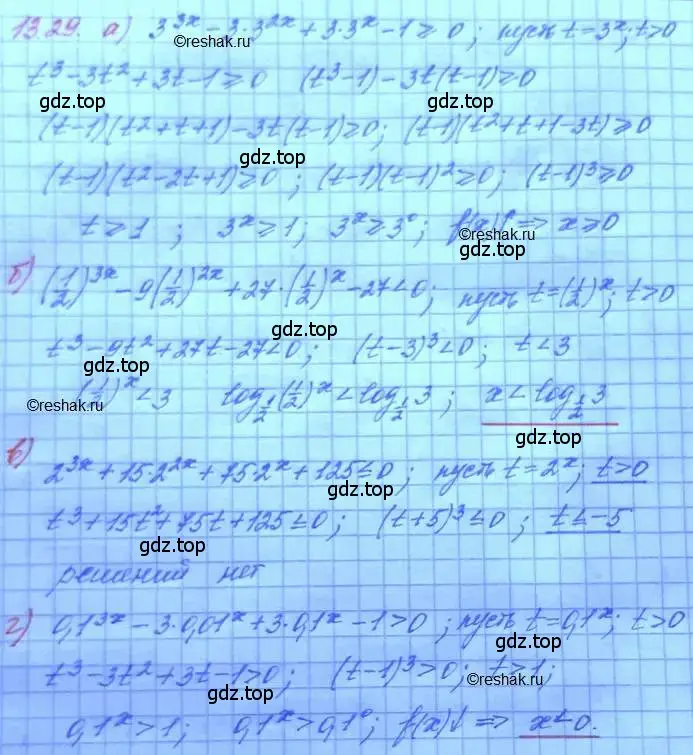 1329. а) 3^{3x} - 3·3^{2x} + 3·3^x - 1 ≥ 0; пусть t = 3^x; t>0
©reshak.ru
t^3 - 3t^2 + 3t - 1 ≥ 0 (t^3 - 1) - 3t(t-1) ≥ 0
gdz.top gdz.top
(t-1)(t^2+t+1) - 3t(t-1) ≥ 0; (t-1)(t^2+t+1-3t) ≥ 0
gdz.top
(t-1)(t^2-2t+1) ≥ 0; (t-1)(t-1)^2 ≥ 0; (t-1)^3 ≥ 0
t ≥ 1; 3^x ≥ 1; 3^x ≥ 3^0; f(x)↑ => x ≥ 0
gdz.top ©reshak.ru
б) (1/2)^{3x} - 9(1/2)^{2x} + 27·(1/2)^x - 27 < 0; пусть t = (1/2)^x; t>0
gdz.top
t^3 - 9t^2 + 27t - 27 < 0; (t-3)^3 < 0; t < 3
gdz.top
(1/2)^x < 3 log_{1/2}(1/2)^x < log_{1/2} 3; x < log_{1/2} 3
©reshak.ru
gdz.top
в) 2^{3x} + 15·2^{2x} + 75·2^x + 125 ≤ 0; пусть t = 2^x; t>0
gdz.top
t^3 + 15t^2 + 75t + 125 ≤ 0; (t+5)^3 ≤ 0; t ≤ -5
gdz.top
решений нет
г) 0,1^{3x} - 3·0,01^x + 3·0,1^x - 1 > 0; пусть t = 0,1^x; t>0
gdz.top
t^3 - 3t^2 + 3t - 1 > 0; (t-1)^3 > 0; t > 1;
©reshak.ru
gdz.top
0,1^x > 1; 0,1^x > 0,1^0; f(x)↓ => x < 0.
gdz.top